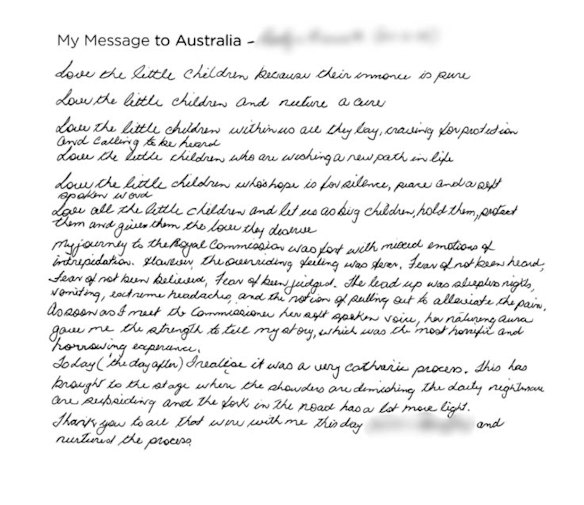 My Message to Australia –
Love the little children because their innonce is pure
Love the little children and nuture a cure
Love the little children within us all they lay, craving for protection
and calling to be heard
Love the little children who are wishing a new path in life
Love the little children who's hope is for silence, peace and a soft
spoken word
Love all the little children and let us as big children, hold them, protect
them and given them the love they deserve
My journey to the Royal Commission was fort with mixed emotions of
intrepidation. However, the overriding feeling was fever. Fear of not been heard,
Fear of not been believed, Fear of been judged. The lead up was sleepless nights,
vomiting, extreme headaches, and the notion of pulling out to alleviate the pain.
As soon as I meet the Commissioner her soft spoken voice, her naturing aura
gave me the strength to tell my story, which was the most horrific and
horrowing experience.
Today (the day after) I realise it was a very catharic process. This has
brought to the stage where the shawders are demishing the daily nightmare
are subsiding and the fork in the road has a lot more light.
Thank you to all that were with me this day and
nurtured the process